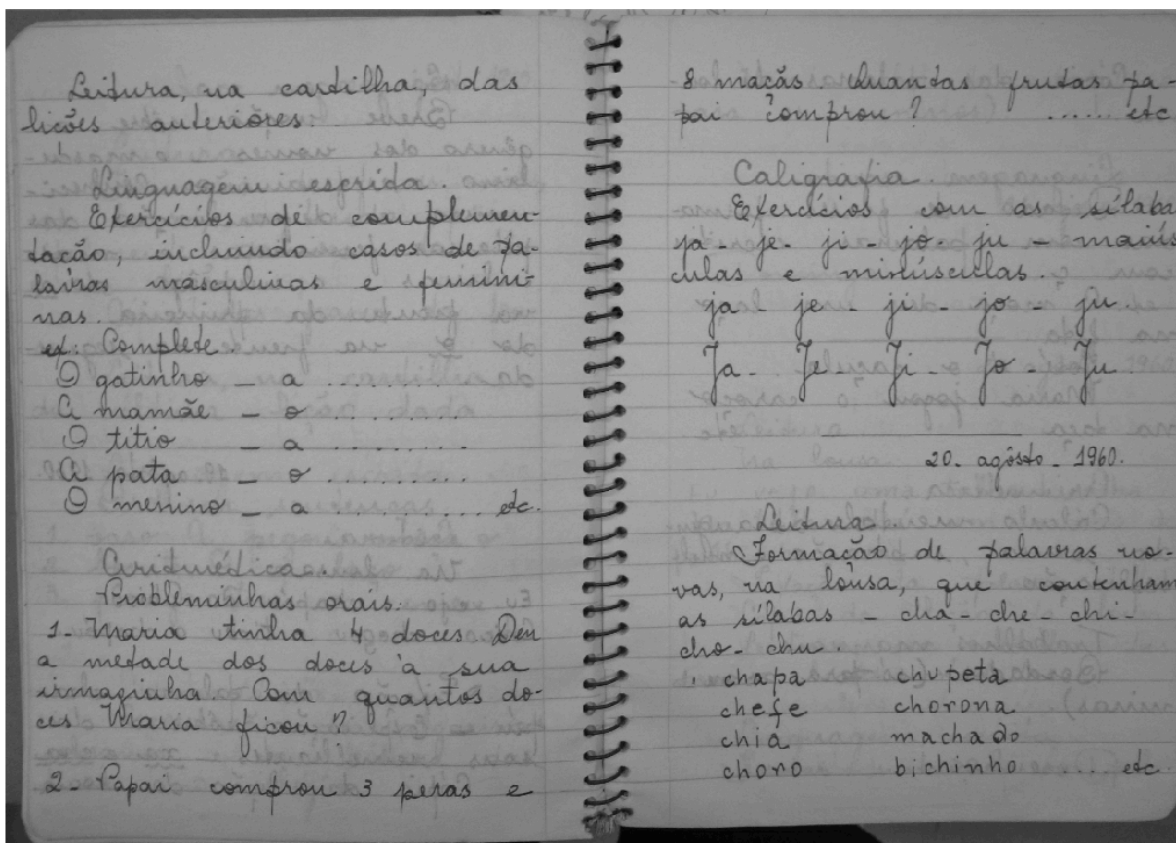 Leitura, na cartilha, das
lições anteriores.
Linguagem escrita.
Exercícios de complemen-
tação, incluindo casos de pa-
lavras masculinas e femini-
nas.
ex: Complete
O gatinho - a ..........
A mamãe - o ..........
O titio - a ..........
A pata - o ..........
O menino - a .......... etc.
Aritmética
Probleminhas orais.
1- Maria tinha 4 doces. Deu
a metade dos doces à sua
irmãzinha. Com quantos do-
ces Maria ficou?
2- Papai comprou 3 peras e
8 maçãs. Quantas frutas pa-
pai comprou? ...... etc
Caligrafia.
Exercícios com as sílaba
ja- je- ji- jo- ju - maiús
culas e minúsculas.
ja- je- ji- jo- ju
Ja- Je- Ji- Jo- Ju
20- agôsto- 1960.
Leitura
Formação de palavras no-
vas, na lousa, que contenham
as sílabas - cha- che- chi-
cho- chu.
chapa chupeta
chefe chorona
chia machado
choro bichinho .... etc.